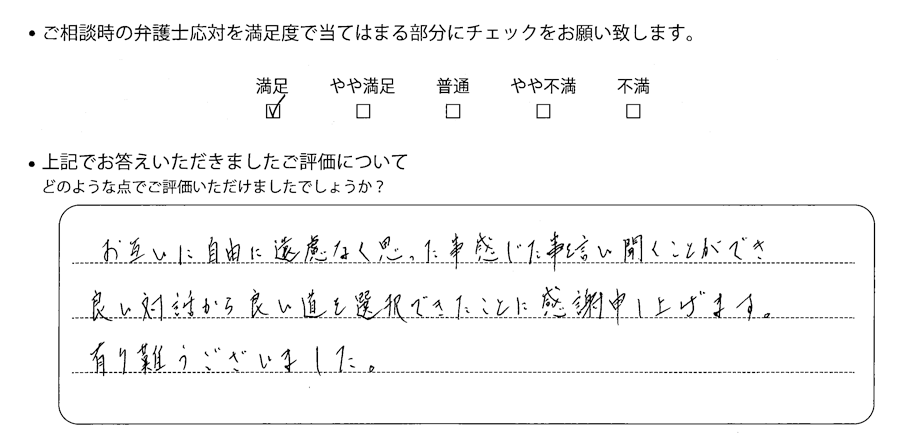 • ご相談時の弁護士応対を満足度で当てはまる部分にチェックをお願い致します。
満足 やや満足 普通 やや不満 不満
☑ ☐ ☐ ☐ ☐
• 上記でお答えいただきましたご評価について
どのような点でご評価いただけましたでしょうか？
お互いに自由に遠慮なく思った事感じた事を言い聞くことができ
良い対話から良い道を選択できたことに感謝申し上げます。
有り難うございました。